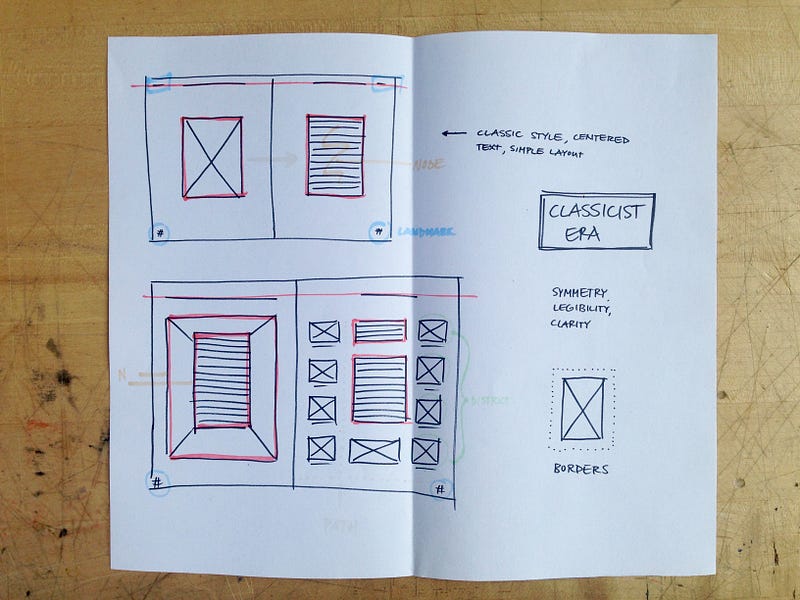 ← CLASSIC STYLE, CENTERED
TEXT, SIMPLE LAYOUT
NODE
CLASSICIST
ERA
# #
LANDMARK
SYMMETRY,
LEGIBILITY,
CLARITY
N
DISTRICT
BORDERS
# #
PATH